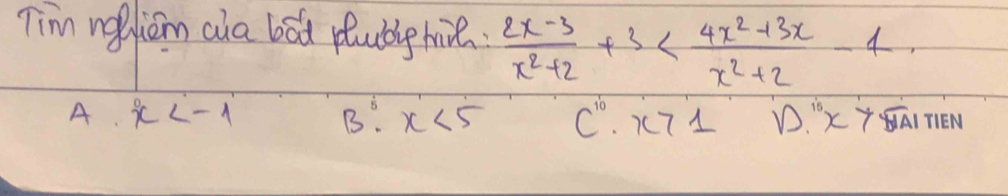 Tìm nghiệm của bất phương trình: \frac{2x-3}{x^2+2} + 3 < \frac{4x^2+3x}{x^2+2} - 1.
A. x < -1 B. x < 5 C. x > 1 D. x >
5 10 15
HẢI TIEN